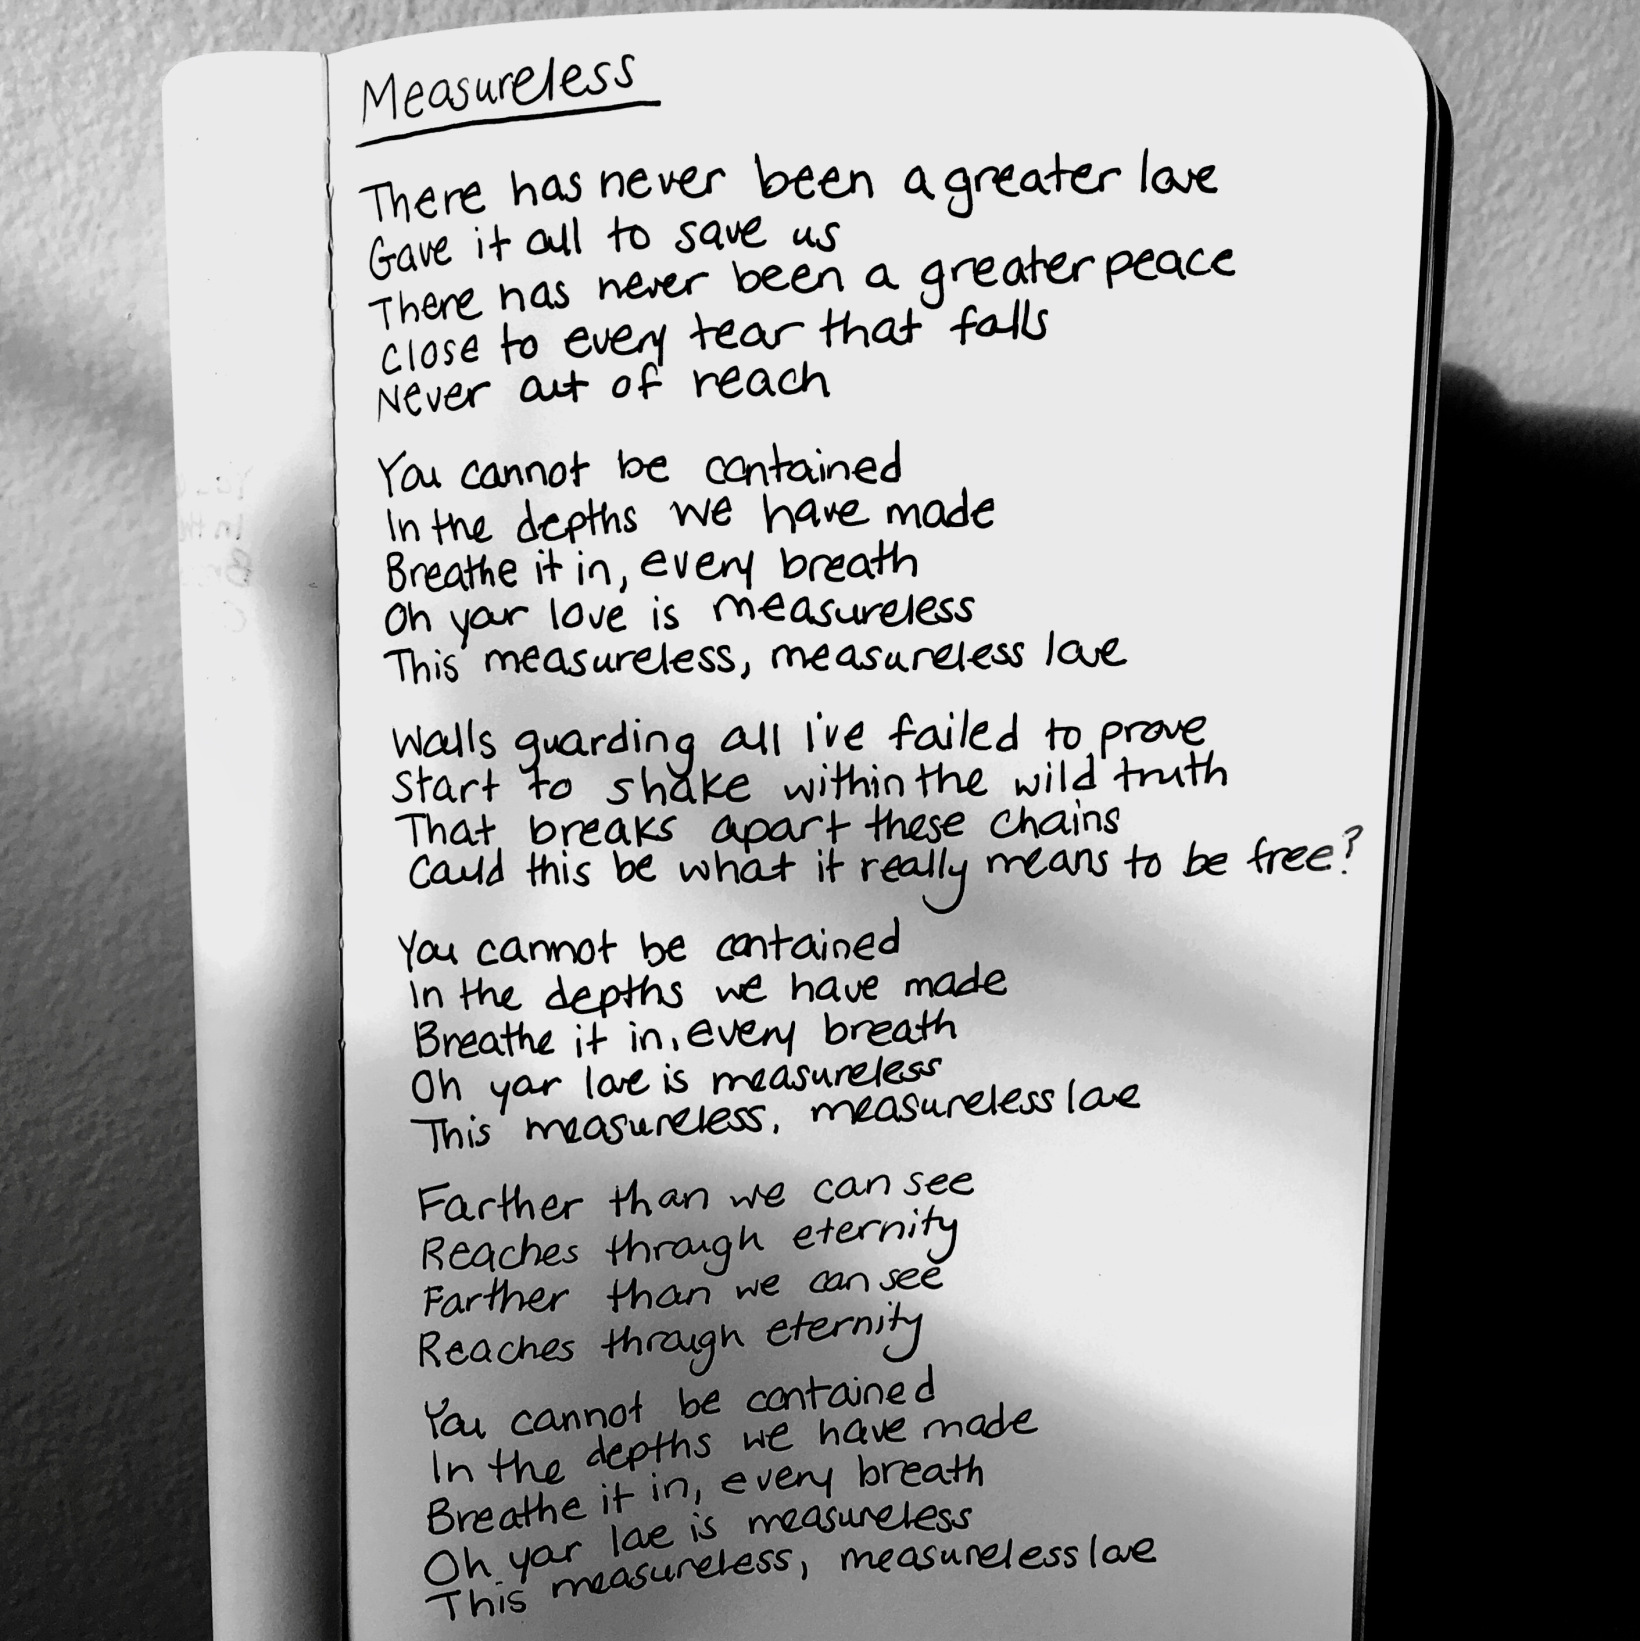 Measureless
There has never been a greater love
Gave it all to save us
There has never been a greater peace
Close to every tear that falls
Never out of reach
You cannot be contained
In the depths we have made
Breathe it in, every breath
Oh your love is measureless
This measureless, measureless love
Walls guarding all I've failed to prove
Start to shake within the wild truth
That breaks apart these chains
Could this be what it really means to be free?
You cannot be contained
In the depths we have made
Breathe it in, every breath
Oh your love is measureless
This measureless, measureless love
Farther than we can see
Reaches through eternity
Farther than we can see
Reaches through eternity
You cannot be contained
In the depths we have made
Breathe it in, every breath
Oh your love is measureless
This measureless, measureless love